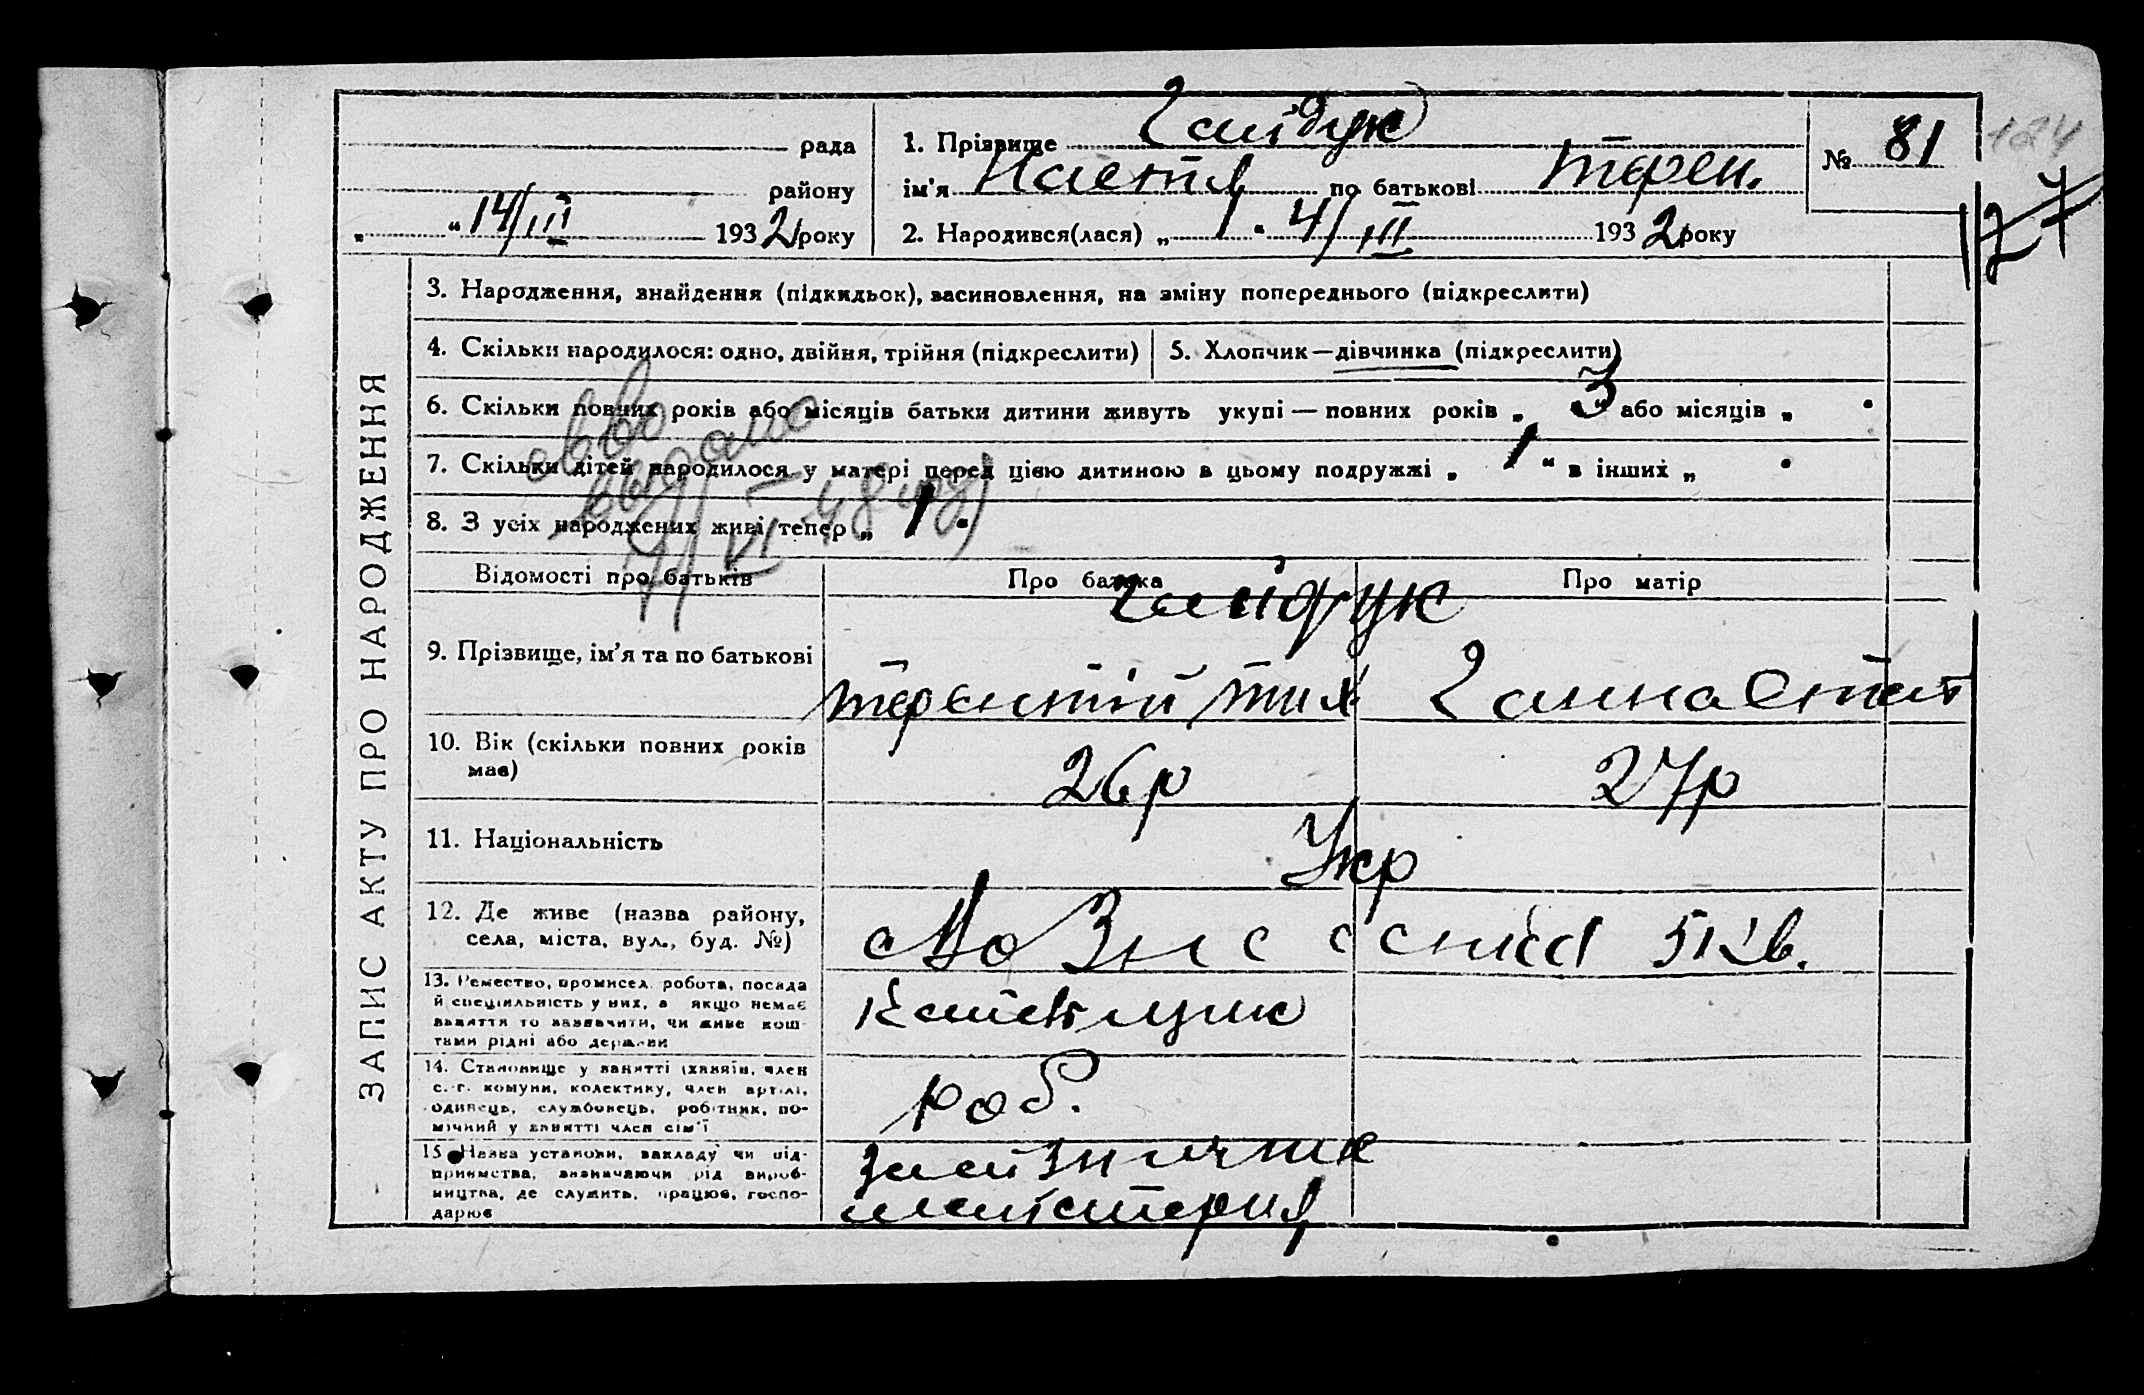 рада
району
„ “ 14/III 1932 року
1. Прізвище Гайдук
ім'я Настя по батькові Терен.
2. Народився(лася) „ “ 4/III 1932 року
№ 81
124
127
ЗАПИС АКТУ ПРО НАРОДЖЕННЯ
3. Народження, знайдення (підкидьок), васиновлення, на зміну попереднього (підкреслити)
4. Скільки народилося: одно, двійня, трійня (підкреслити)
5. Хлопчик—дівчинка (підкреслити)
6. Скільки повних років або місяців батьки дитини живуть укупі — повних років „ 3 “ або місяців „ “
7. Скільки дітей народилося у матері перед цією дитиною в цьому подружжі „ 1 “ в інших „ “
8. З усіх народжених живі тепер „ 1 “
Відомості про батьків
Про батька
Про матір
9. Прізвище, ім'я та по батькові
Гайдук
Терентій Тих
Ганна Степ
10. Вік (скільки повних років
має)
26р
27р
11. Національність
Укр
12. Де живе (назва району,
села, міста, вул., буд. №)
5 кв.
13. Ремество, промисел, робота, посада
й спеціяльність у них, а якщо немає
заняття то зазначити, чи живе кош-
тами рідні або держави
14. Становище у занятті (хазяїн, член
с.-г. комуни, колективу, член артілі,
одинець, службовець, робітник, по-
мічний у занятті член сім'ї
роб.
15. Назва установи, закладу чи під-
приємства, визначаючи рід вироб-
ництва, де служить, працює, госпо-
дарює